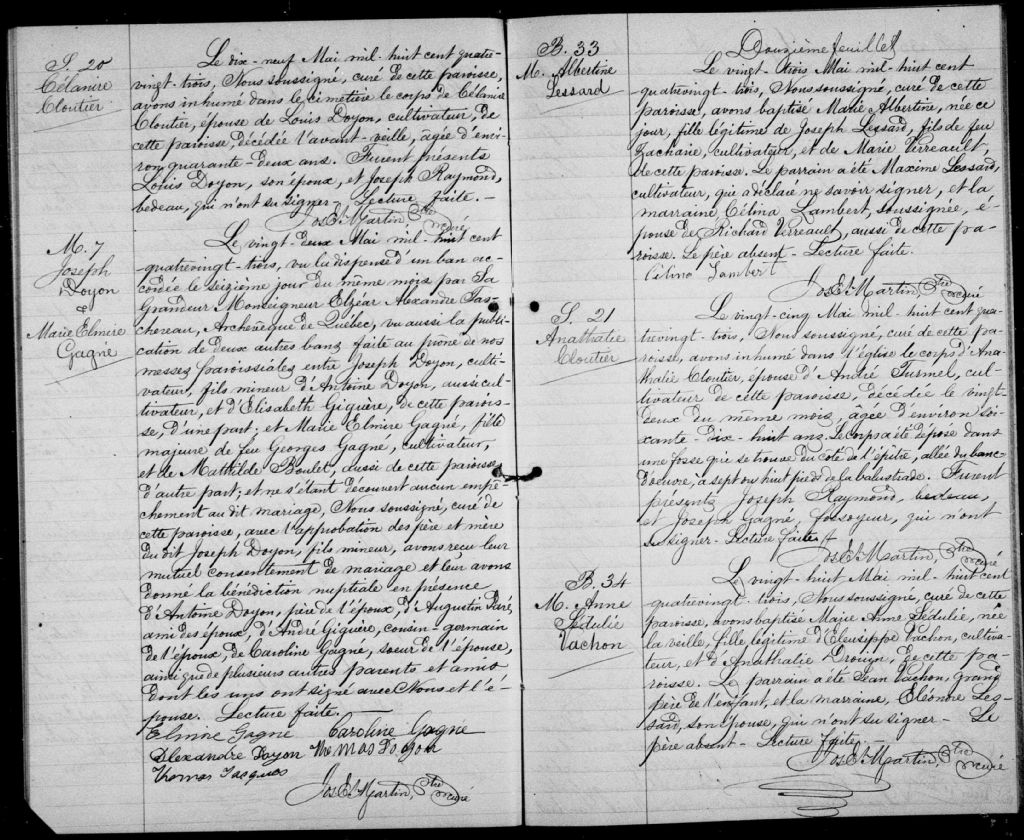 S. 20
Célanire
Cloutier
Le dix-neuf Mai mil-huit cent quatre-
vingt-trois, Nous soussigné, curé de cette paroisse,
avons inhumé dans le cimetière le corps de Célanire
Cloutier, épouse de Louis Doyon, cultivateur, de
cette paroisse, décédée l'avant-veille, âgée d'envi-
ron quarante-deux ans. Furent présents
Louis Doyon, son époux, et Joseph Raymond,
bedeau, qui n'ont su signer - Lecture faite. -
Jos E. Martin, Ptre curé
M. 7
Joseph
Doyon
&
Marie Elmire
Gagné
Le vingt-deux Mai mil-huit cent
quatrevingt-trois, vu la dispense d'un ban ac-
cordée le seizième jour du même mois par Sa
Grandeur Monseigneur Elzéar Alexandre Tas-
chereau, Archevêque de Québec, vu aussi la publi-
cation de deux autres bans faite au prône de nos
messes paroissiales entre Joseph Doyon, culti-
vateur, fils mineur d'Antoine Doyon, aussi cul-
tivateur, et d'Elisabeth Giguère, de cette parois-
se, d'une part; et Marie Elmire Gagné, fille
majeure de feu Georges Gagné, cultivateur,
et de Mathilde Boulet, aussi de cette paroisse,
d'autre part; et ne s'étant découvert aucun empê-
chement au dit mariage, Nous soussigné, curé de
cette paroisse, avec l'approbation des père et mère
du dit Joseph Doyon, fils mineur, avons reçu leur
mutuel consentement de mariage et leur avons
donné la bénédiction nuptiale en présence
d'Antoine Doyon, père de l'époux, d'Augustin Paré,
ami des époux, d'André Giguère, cousin-germain
de l'époux, de Caroline Gagné, soeur de l'épouse,
ainsi que de plusieurs autres parents et amis
dont les uns ont signé avec Nous et l'é-
pouse. Lecture faite.
Elmire Gagné Caroline Gagné
Alexandre Doyon Thomas Doyon
Thomas Jacques
Jos E. Martin, Ptre curé
Douzième feuillet
B. 33
M. Albertine
Lessard
Le vingt-trois Mai mil-huit cent
quatrevingt-trois, Nous soussigné, curé de cette
paroisse, avons baptisé Marie Albertine, née ce
jour, fille légitime de Joseph Lessard, fils de feu
Zacharie, cultivateur, et de Marie Verreault,
de cette paroisse. Le parrain a été Maxime Lessard,
cultivateur, qui a déclaré ne savoir signer, et la
marraine Célina Lambert, soussignée, é-
pouse de Richard Verreault, aussi de cette pa-
roisse. Le père absent - Lecture faite.
Célina Lambert
Jos E. Martin, Ptre curé
S. 21
Anathalie
Cloutier
Le vingt-cinq Mai mil-huit cent qua-
trevingt-trois, Nous soussigné, curé de cette pa-
roisse, avons inhumé dans l'église le corps d'Ana-
thalie Cloutier, épouse d'André Turmel, cul-
tivateur de cette paroisse, décédée le vingt-
deux du même mois, âgée d'environ soi-
xante-dix-huit ans. Le corps a été déposé dans
une fosse qui se trouve du côté de l'épitre, allée du banc-
d'oeuvre, à sept ou huit pieds de la balustrade. Furent
présents Joseph Raymond, bedeau,
et Joseph Gagné, fossoyeur, qui n'ont
su signer - Lecture faite
Jos E. Martin, Ptre curé
B. 34
M. Anne
Sédulie
Vachon
Le vingt-huit Mai mil-huit cent
quatrevingt-trois, Nous soussigné, curé de cette
paroisse, avons baptisé Marie Anne Sédulie, née
la veille, fille légitime d'Eleusippe Vachon, cultiva-
teur, et d'Anathalie Drouyn, de cette pa-
roisse. Le parrain a été Jean Vachon, grand
père de l'enfant, et la marraine, Eléonore Les-
sard, son épouse, qui n'ont su signer - Le
père absent - Lecture faite. -
Jos E. Martin, Ptre curé